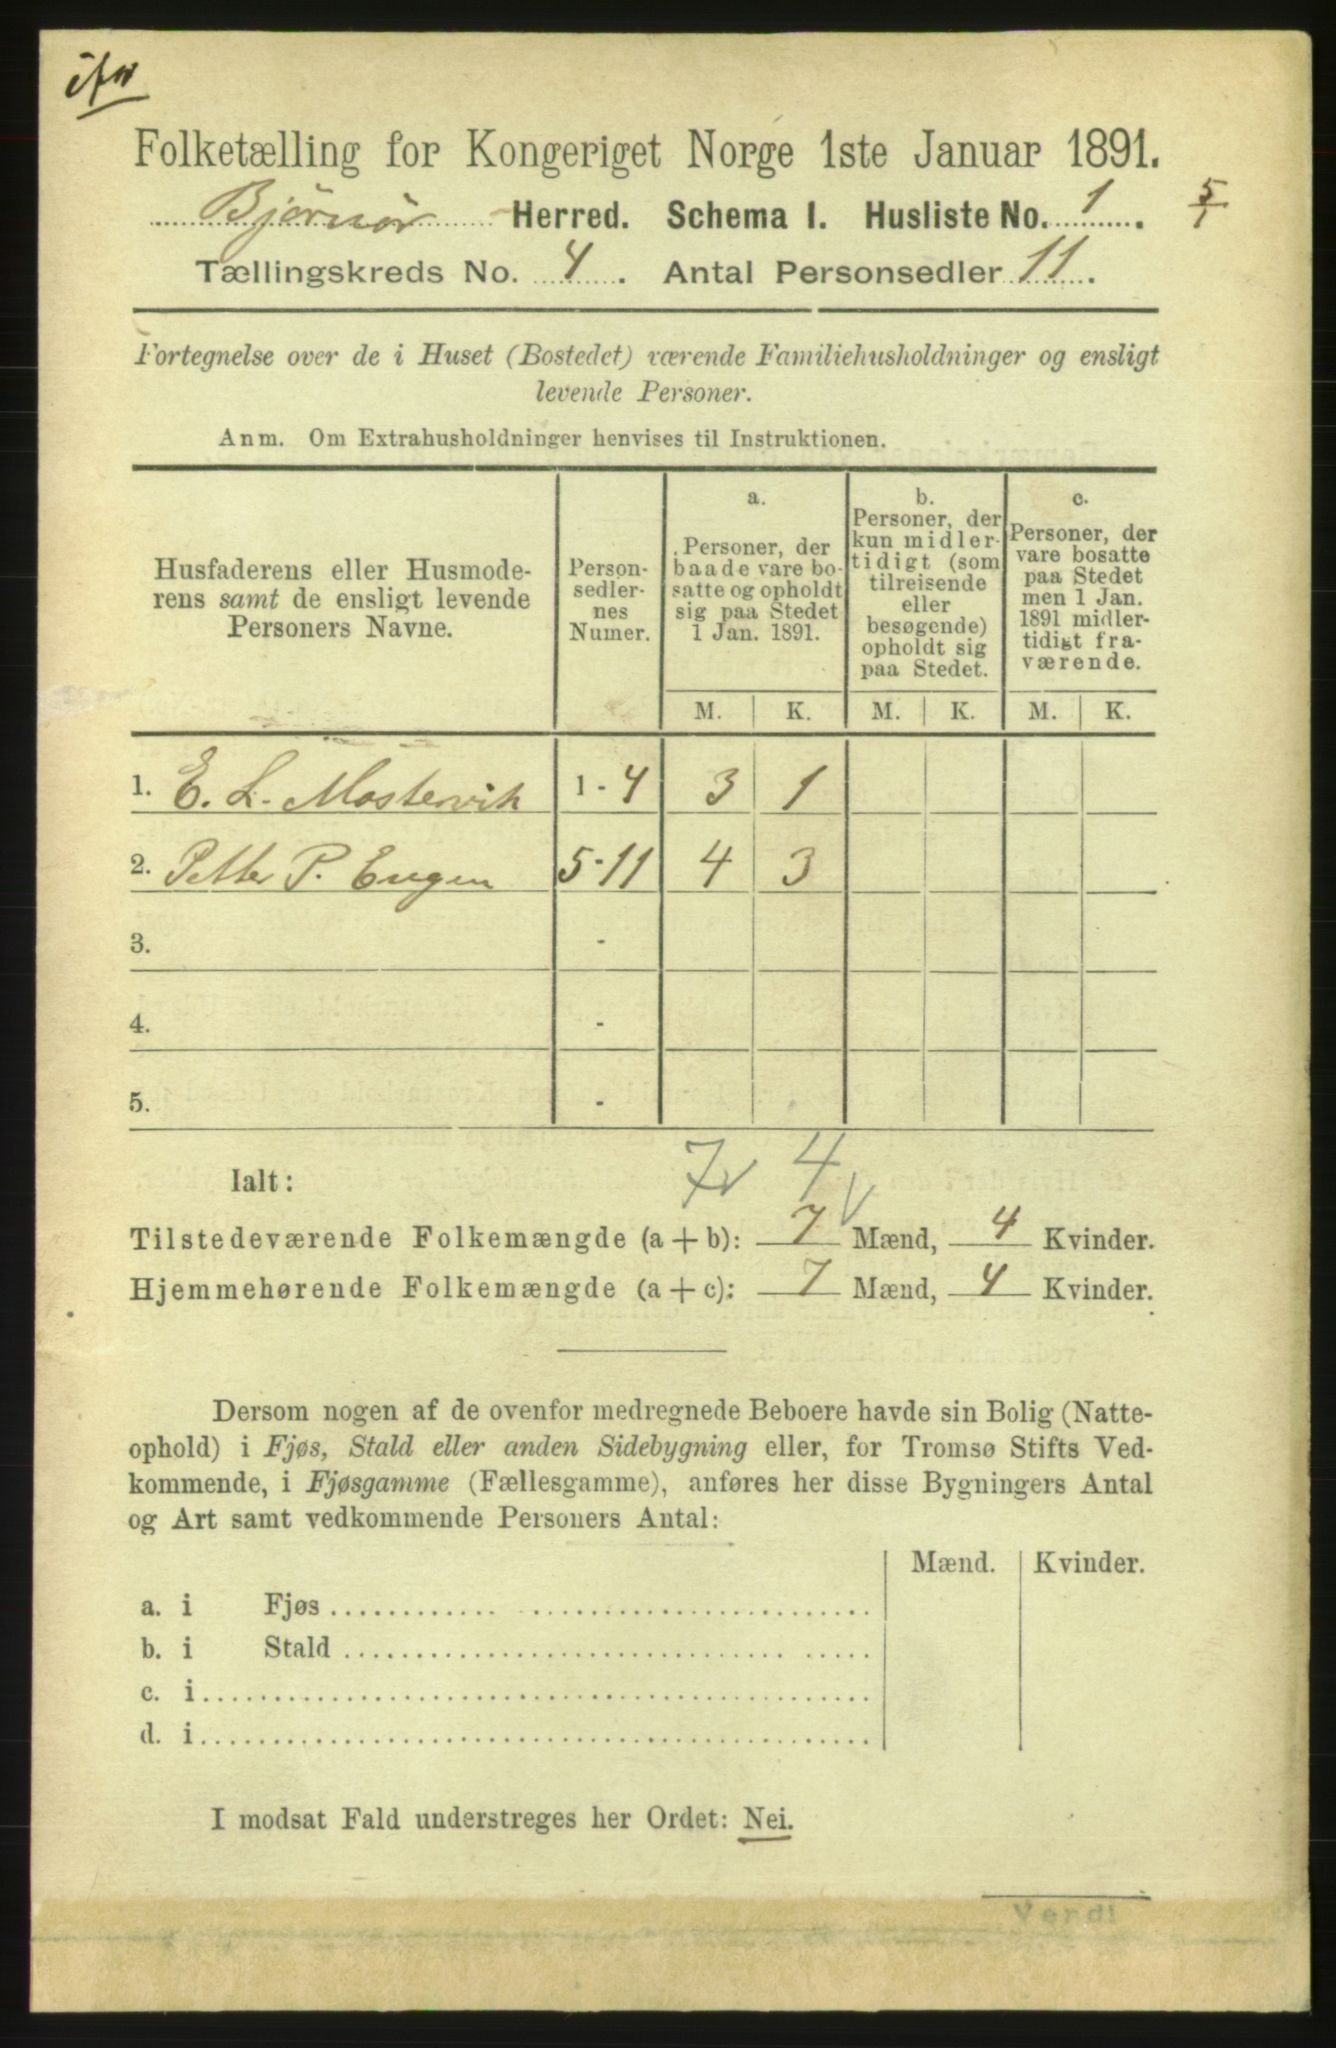 Folketælling for Kongeriget Norge 1ste Januar 1891.
Bjørnør Herred. Schema I. Husliste No. 1. 5/1
Tællingskreds No. 4. Antal Personsedler 11.
Fortegnelse over de i Huset (Bostedet) værende Familiehusholdninger og ensligt
levende Personer.
Anm. Om Extrahusholdninger henvises til Instruktionen.
Husfaderens eller Husmode-
rens samt de ensligt levende
Personers Navne.
Person-
sedler-
nes
Numer.
a.
Personer, der
baade vare bo-
satte og opholdt
sig paa Stedet
1 Jan. 1891.
b.
Personer, der
kun midler-
tidigt (som
tilreisende
eller
besøgende)
opholdt sig
paa Stedet.
c.
Personer, der
vare bosatte
paa Stedet
men 1 Jan.
1891 midler-
tidigt fra-
værende.
M. K. M. K. M. K.
1. E. L. Mastervik 1-4 3 1
2. Petter P. Eugen 5-11 4 3
3. -
4. -
5. -
7 4
Ialt:
Tilstedeværende Folkemængde (a + b): 7 Mænd, 4 Kvinder.
Hjemmehørende Folkemængde (a + c): 7 Mænd, 4 Kvinder.
Dersom nogen af de ovenfor medregnede Beboere havde sin Bolig (Natte-
ophold) i Fjøs, Stald eller anden Sidebygning eller, for Tromsø Stifts Ved-
kommende, i Fjøsgamme (Fællesgamme), anføres her disse Bygningers Antal
og Art samt vedkommende Personers Antal:
Mænd. Kvinder.
a. i Fjøs
b. i Stald
c. i
d. i
I modsat Fald understreges her Ordet: Nei.
Vendt